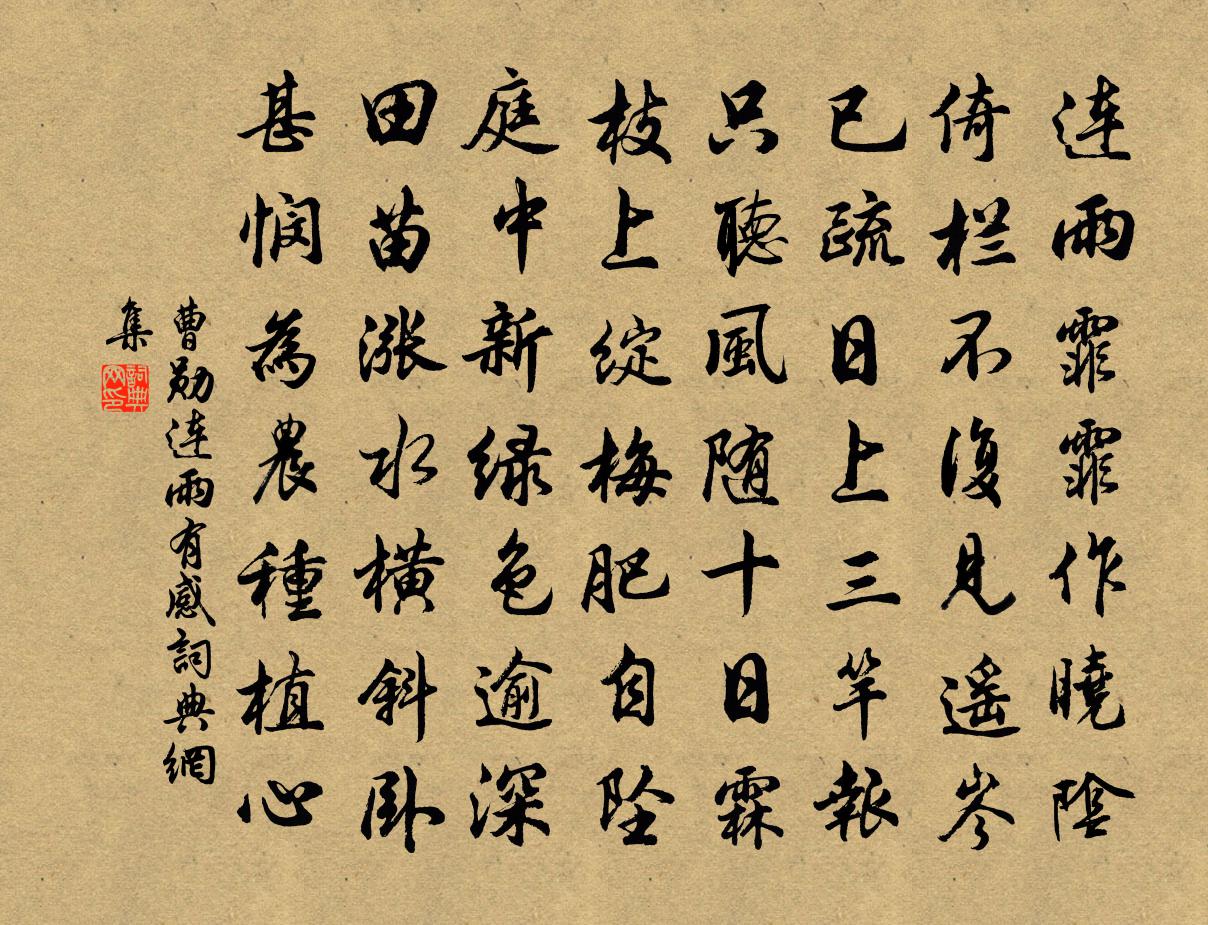 連雨霏霏作曉陰
倚栏不復見遥岑
已疏日上三竿報
只聽風随十日霖
枝上綻梅肥自坠
庭中新绿色逾深
田苗漲水橫斜卧
甚悯為農種植心
曹勛連雨有感詞典網
集
詞典
网印